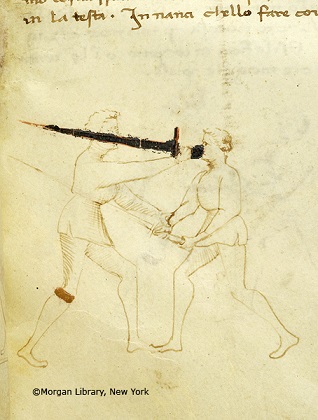 in la testa · Innanci chello face co
©Morgan Library, New York